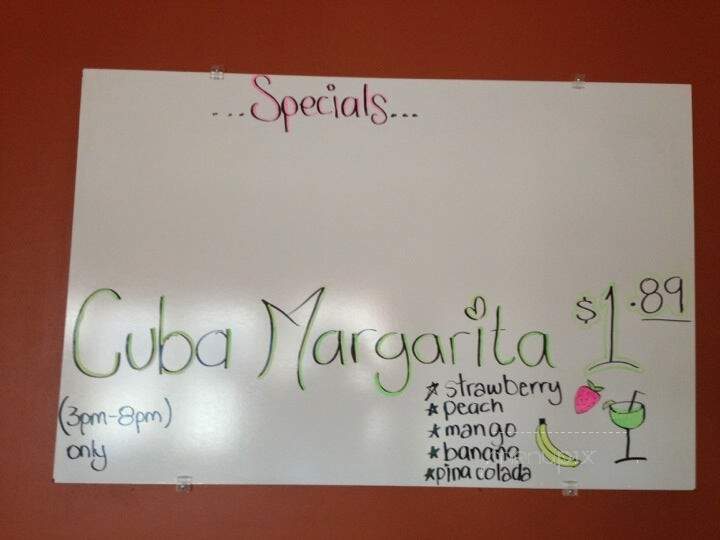 ...Specials...
Cuba Margarita $1.89
(3pm-8pm)
only
★ strawberry
★ peach
★ mango
★ banana
★ pina colada